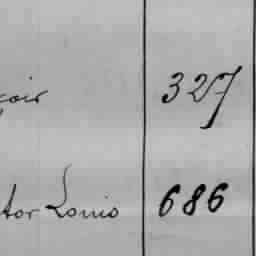 çois 327
tor Louis 686